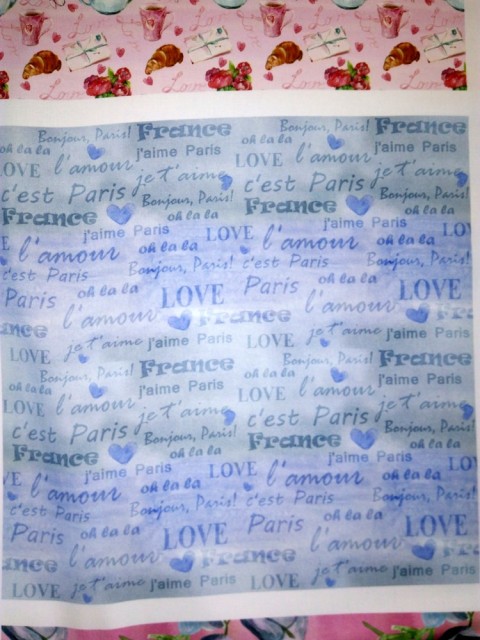 Love Love Love
Bonjour, Paris! France Bonjour, Paris! France
oh la la j'aime Paris oh la la j'aime Paris
LOVE l'amour je t'aime LOVE l'amour je t'aime
c'est Paris Bonjour, Paris! c'est Paris Bonjour, Paris!
France oh la la France oh la la
j'aime Paris LOVE j'aime Paris
l'amour oh la la l'amour oh la la
c'est Paris Bonjour, Paris! c'est Paris Bonjour, Paris!
Paris oh la la LOVE Paris oh la la LOVE
l'amour France l'amour
LOVE je t'aime j'aime Paris LOVE je t'aime j'aime Paris
Bonjour, Paris! France Bonjour, Paris! France
oh la la j'aime Paris oh la la j'aime Paris
LOVE l'amour je t'aime LOVE l'amour je t'aime
c'est Paris Bonjour, Paris! c'est Paris Bonjour, Paris!
France oh la la France oh la la
j'aime Paris LOVE j'aime Paris
l'amour oh la la l'amour oh la la
c'est Paris Bonjour, Paris! c'est Paris Bonjour, Paris!
Paris oh la la LOVE Paris oh la la LOVE
l'amour France l'amour
LOVE je t'aime j'aime Paris LOVE je t'aime j'aime Paris